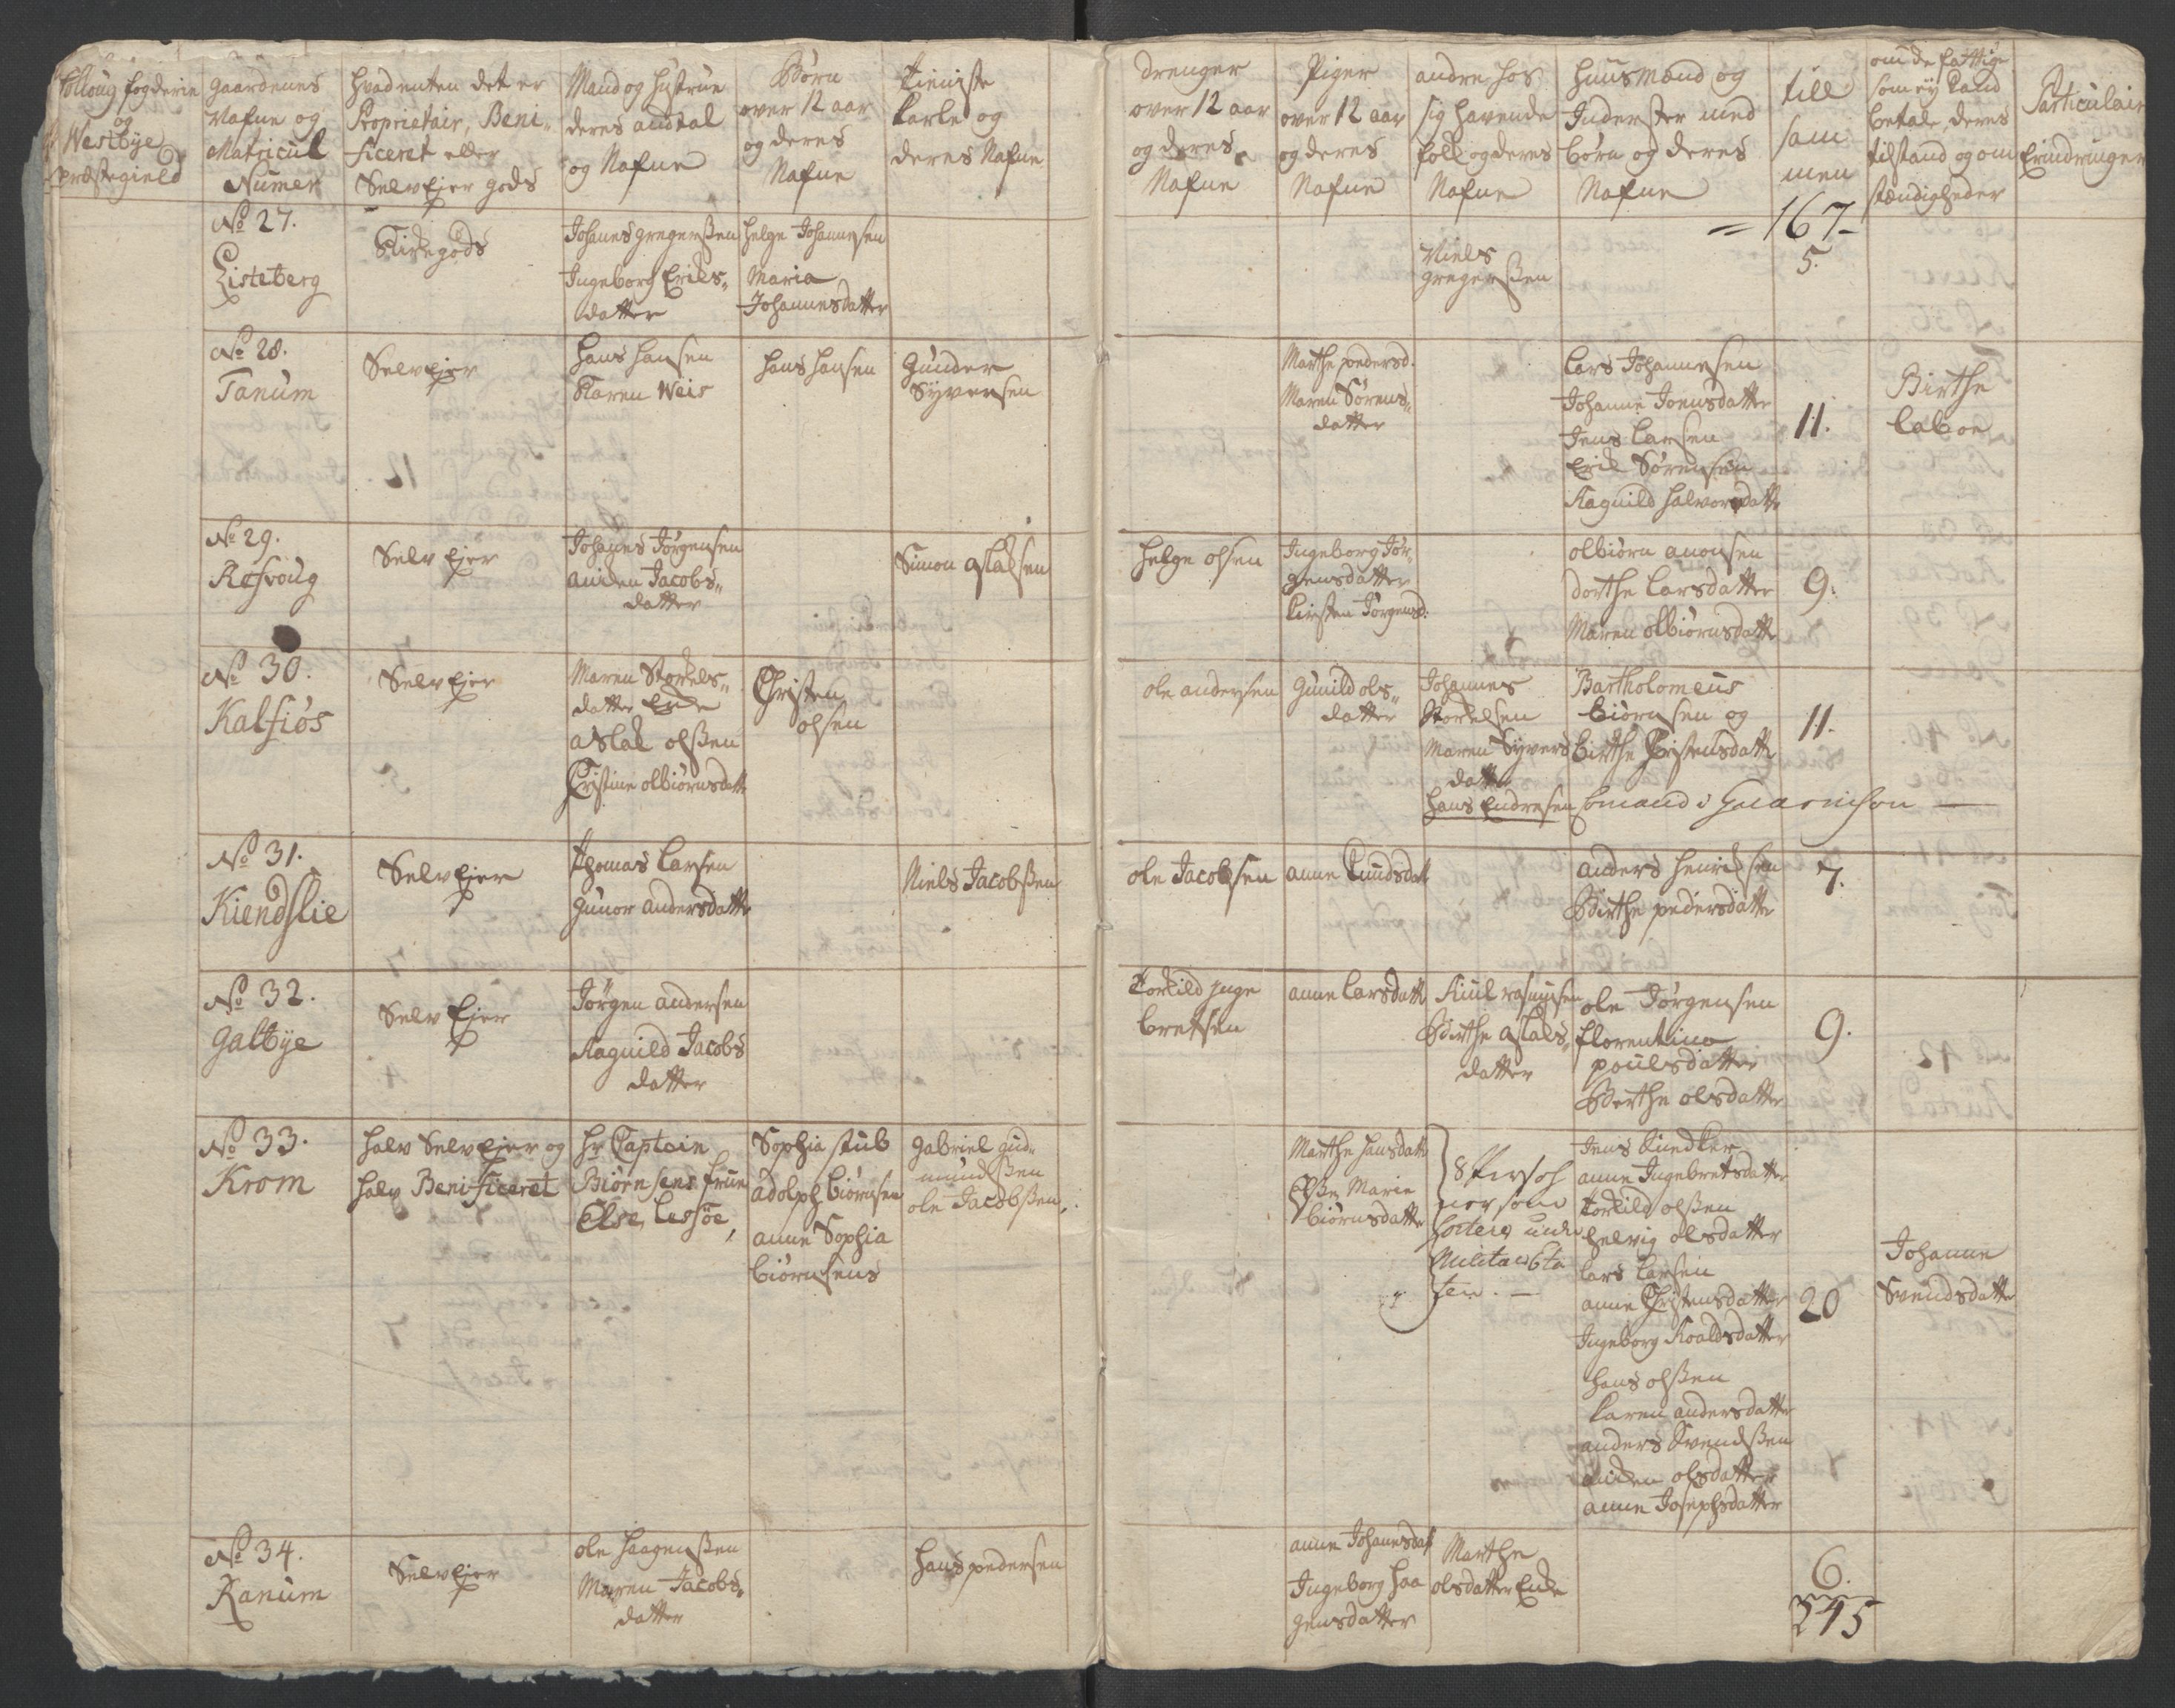 Folloug fogderie
og
Westbye
præstegield
gaardenes
Nafne og
Matricul
Numer
hvadenten det er
Proprietair, Beni-
ficeret eller
SelvEjer gods
Mand og hustrue
deres andtal
og Nafne
Børn
over 12 aar
og deres
Nafne
tieniste
karle og
deres Nafne
drenger
over 12 aar
og deres
Nafne
Piger
over 12 aar
og deres
Nafne
andre hos
sig havende
folk og deres
Nafne
huusmænd og
Inderster med
børn og deres
Nafne
till
sam
men
om de fattige
som ej kand
betale, deres
tilstand og om
stændigheder
Particulair
Erindringer
= 167-
No 27.
Listeberg
Kirkegods
Johanes gregerssen
Ingeborg Eriks-
datter
helge Johannesen
Maria
Johannesdatter
Niels
gregerssen
5.
No 28.
Tanum
SelvEjer
hans hansen
Karen Weis
hans hansen
Gunder
Syversen
Marthe pedersd.
Maren Sørens-
datter
Lars Johannesen
Johanne Joensdatter
Jens Larsen
Erik Sørensen
Ragnild halvorsdatter
11.
Birthe
Laboe
No 29.
Rosvoug
Selv Ejer
Johanes Jørgensen
aniken Jacobs-
datter
Simon aslaksen
helge olsen
Ingeborg Jør-
gensdatter
Kirsten Jørgensd:
olbiørn anonsen
dorthe Larsdatter
Maren olbiørnsdatter
9.
No 30.
Kalsiøs
SelvEjer
Maren Storkels-
datter Enke
aslak olssen
Christine olbiørnsdatter
Christen
olsen
ole andersen
Gunild ols-
datter
Johannes
Storkelsen
Maren Syvers
datter
hans Endresen
Bartholomeus
Biørnsen og
Birthe Christensdatter
11.
No 31.
Kiendslie
SelvEjer
Thomas Larsen
Gunor andersdatter
Niels Jacobssen
ole Jacobsen
anne Knudsdatt
anders henriksen
Birthe pedersdatter
7.
No 32.
Galbye
Selv Ejer
Jørgen andersen
Ragnild Jacobs
datter
Torkild Inge
bretsen
anne Larsdatter
Kiul rasmusen
Birthe aslaks-
datter
ole Jørgensen
florentina
poulsdatter
Berthe olsdatter
9.
No 33.
Krom
halv SelvEjer og
halv Benificeret
hr Captain
Biørnsens frue
Else Lessøe,
Sophia stub
adolph biørnsen
anne Sophia
biørnsens
gabriel gud-
mundssen
ole Jacobssen,
Marthe hansdatter
Else Marie
biørnsdatter
8 Persoh
ner som
sorterer under
Militairsta
ten. —
Jens Kunedker
anne Ingebretsdatter
Torkild olssen
helvig olsdatter
Lars Larsen
anne Christensdatter
Ingeborg Roaldsdatter
hans olssen
Karen andersdatter
anders Svendssen
aniken olsdatter
anne Josephsdatter
20
Johanne
Svendsdatter
No 34.
Kanum
SelvEjer
ole haagenssen
Maren Jacobs-
datter
hans pedersen
anne Johanesdatt
Ingeborg haa
gensdatter
Marthe
olsdatter Enke
6.
245